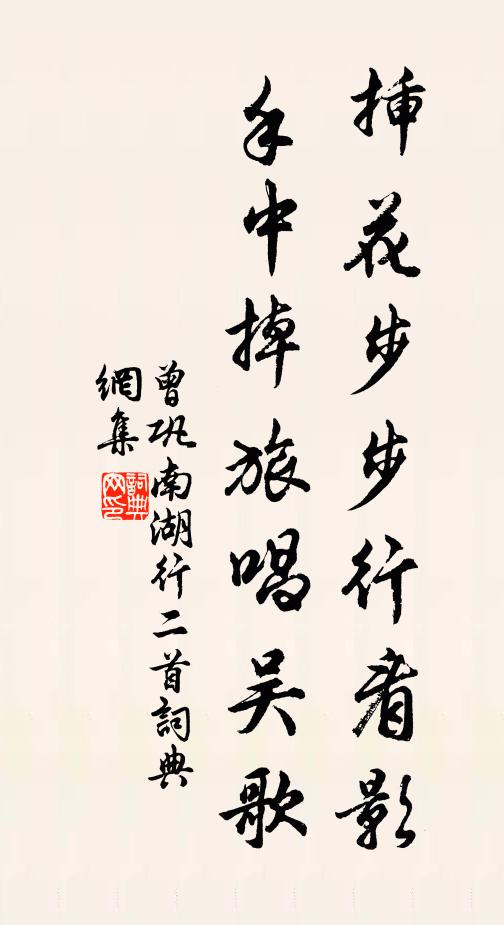 插花步步行看影
手中掉旅唱吴歌
曾巩南湖行二首詞典
網集
詞典
网印